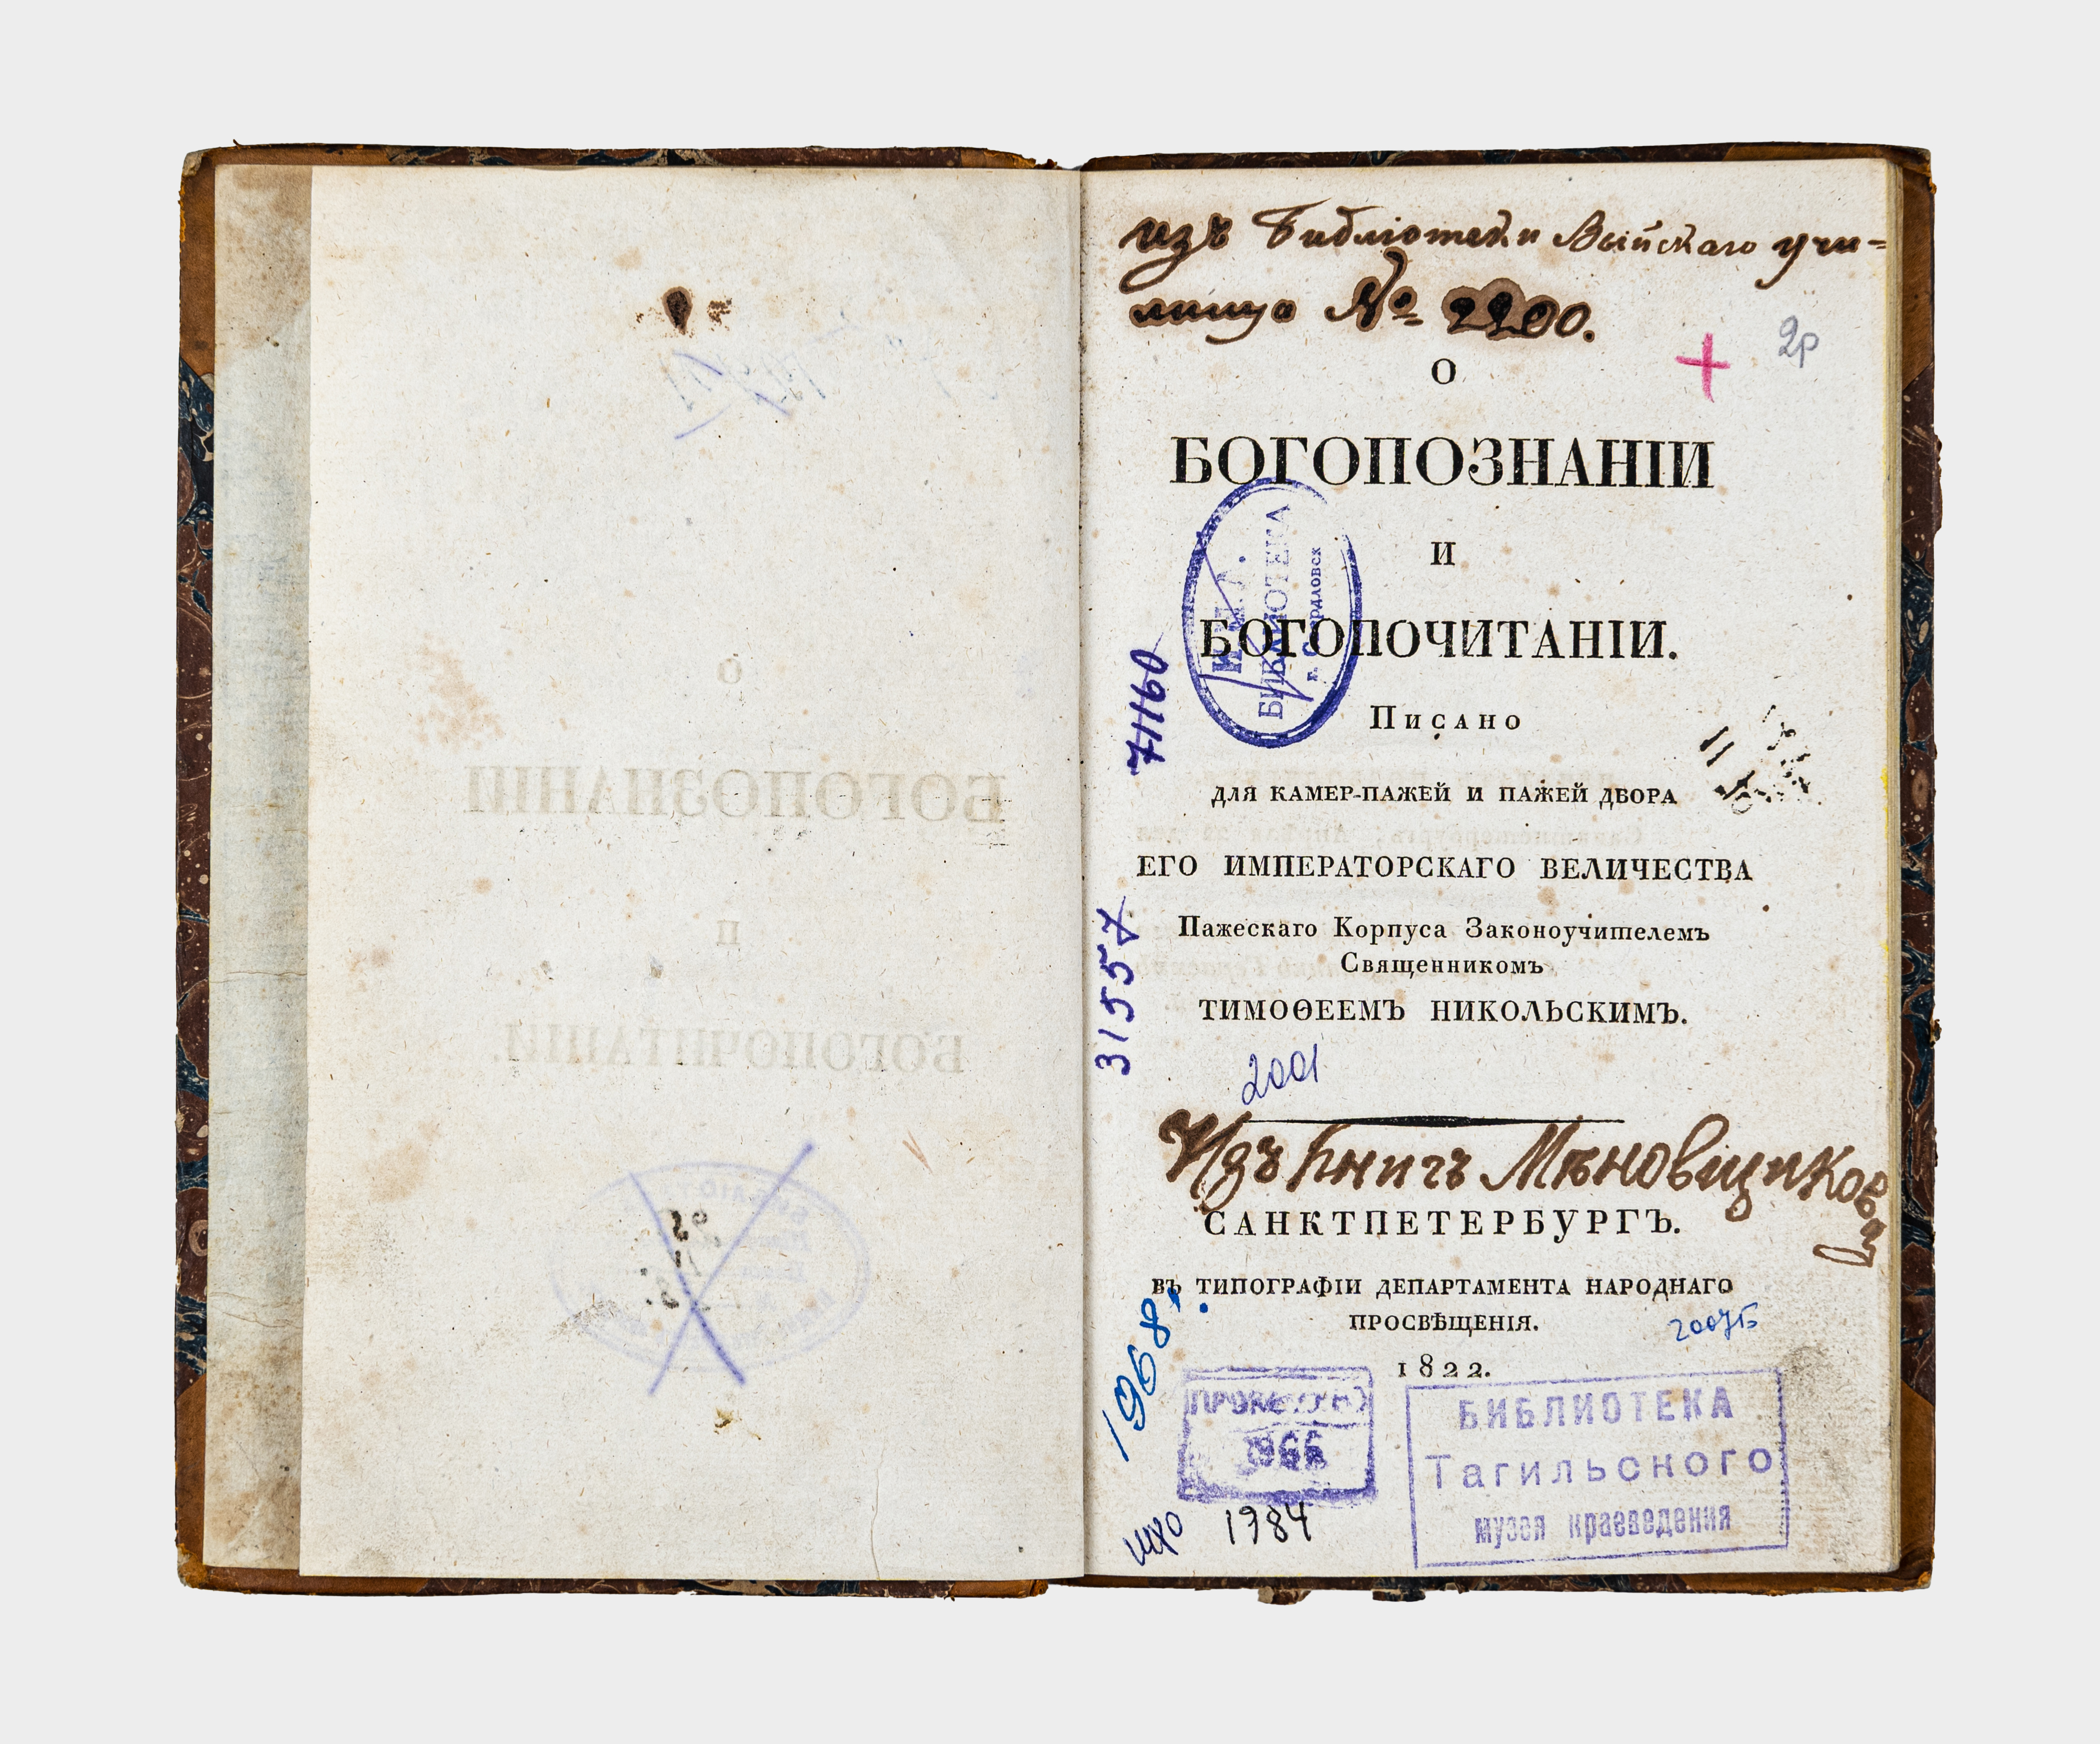 изъ Библіотеки Выйскаго учи=
лища № 2200.
2р
О
БОГОПОЗНАНІИ
И
БОГОПОЧИТАНІИ.
БИБЛИОТЕКА
г. Свердловск
Писано
71160
ДЛЯ КАМЕР-ПАЖЕЙ И ПАЖЕЙ ДВОРА
ЕГО ИМПЕРАТОРСКАГО ВЕЛИЧЕСТВА
Пажескаго Корпуса Законоучителемъ
Священникомъ
ТИМОѲЕЕМЪ НИКОЛЬСКИМЪ.
31557
2001
Изъ книгъ Мѣновщикова
САНКТПЕТЕРБУРГЪ.
ВЪ ТИПОГРАФІИ ДЕПАРТАМЕНТА НАРОДНАГО
ПРОСВѢЩЕНІЯ.
2007Б
1822.
1968г.
1966
1984
БИБЛИОТЕКА
Тагильского
музея краеведения